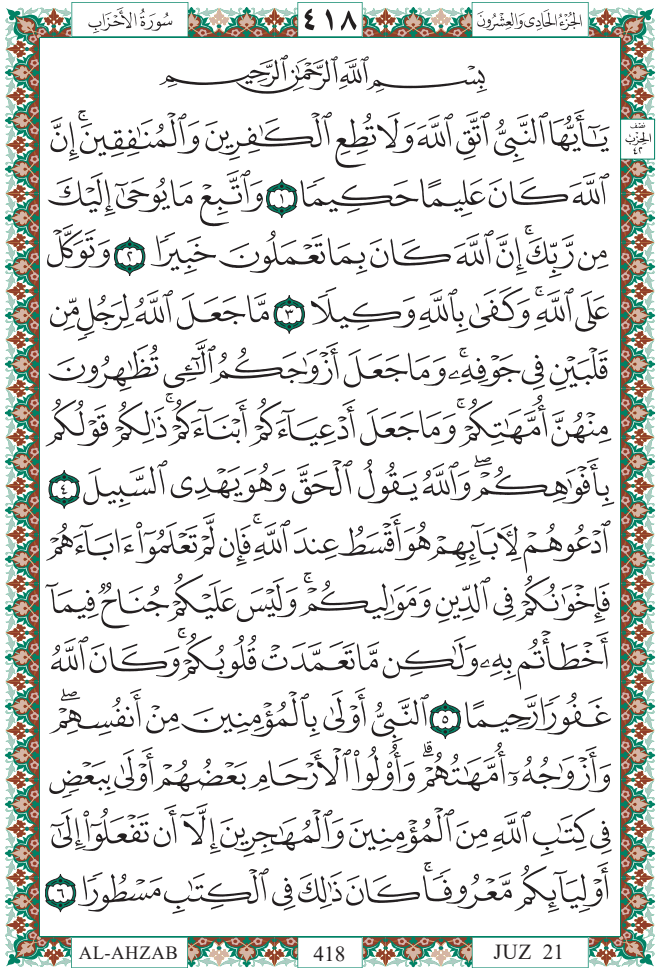 الجُزْءُ الحَادِى وَالعِشْرُونَ
٤١٨
سُورَةُ الأَحْزَابِ
بِسْمِ ٱللَّهِ ٱلرَّحْمَٰنِ ٱلرَّحِيمِ
يَٰٓأَيُّهَا ٱلنَّبِىُّ ٱتَّقِ ٱللَّهَ وَلَا تُطِعِ ٱلْكَٰفِرِينَ وَٱلْمُنَٰفِقِينَۚ إِنَّ
نصف الحزب ٤٢
ٱللَّهَ كَانَ عَلِيمًا حَكِيمًا ١ وَٱتَّبِعْ مَا يُوحَىٰٓ إِلَيْكَ
مِن رَّبِّكَۚ إِنَّ ٱللَّهَ كَانَ بِمَا تَعْمَلُونَ خَبِيرًا ٢ وَتَوَكَّلْ
عَلَى ٱللَّهِۚ وَكَفَىٰ بِٱللَّهِ وَكِيلًا ٣ مَّا جَعَلَ ٱللَّهُ لِرَجُلٍ مِّن
قَلْبَيْنِ فِى جَوْفِهِۦۚ وَمَا جَعَلَ أَزْوَٰجَكُمُ ٱلَّٰٓـِٔى تُظَٰهِرُونَ
مِنْهُنَّ أُمَّهَٰتِكُمْۚ وَمَا جَعَلَ أَدْعِيَآءَكُمْ أَبْنَآءَكُمْۚ ذَٰلِكُمْ قَوْلُكُم
بِأَفْوَٰهِكُمْۖ وَٱللَّهُ يَقُولُ ٱلْحَقَّ وَهُوَ يَهْدِى ٱلسَّبِيلَ ٤
ٱدْعُوهُمْ لِءَابَآئِهِمْ هُوَ أَقْسَطُ عِندَ ٱللَّهِۚ فَإِن لَّمْ تَعْلَمُوٓا۟ ءَابَآءَهُمْ
فَإِخْوَٰنُكُمْ فِى ٱلدِّينِ وَمَوَٰلِيكُمْۚ وَلَيْسَ عَلَيْكُمْ جُنَاحٌ فِيمَآ
أَخْطَأْتُم بِهِۦ وَلَٰكِن مَّا تَعَمَّدَتْ قُلُوبُكُمْۚ وَكَانَ ٱللَّهُ
غَفُورًا رَّحِيمًا ٥ ٱلنَّبِىُّ أَوْلَىٰ بِٱلْمُؤْمِنِينَ مِنْ أَنفُسِهِمْۖ
وَأَزْوَٰجُهُۥٓ أُمَّهَٰتُهُمْۗ وَأُو۟لُوا۟ ٱلْأَرْحَامِ بَعْضُهُمْ أَوْلَىٰ بِبَعْضٍ
فِى كِتَٰبِ ٱللَّهِ مِنَ ٱلْمُؤْمِنِينَ وَٱلْمُهَٰجِرِينَ إِلَّآ أَن تَفْعَلُوٓا۟ إِلَىٰٓ
أَوْلِيَآئِكُم مَّعْرُوفًاۚ كَانَ ذَٰلِكَ فِى ٱلْكِتَٰبِ مَسْطُورًا ٦
AL-AHZAB
418
JUZ 21